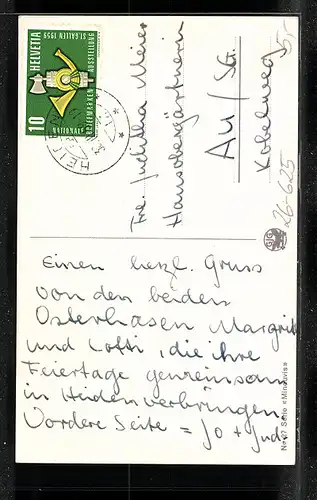 Einen herzl. Gruss
von den beiden
Osterhasen Margrit
und Lotti, die ihre
Feiertage gemeinsam
in Heiden verbringen.
Vordere Seite = Jo + Jud.
Frl. Juditha Meier
Hausdergärtnerin
Au/SG.
Kobelweg
5,-
26-625
HELVETIA
10
NATIONALE
BRIEFMARKEN AUSSTELLUNG
ST. GALLEN 1959
HEIDEN
No. 27 Serie «Minouvis»